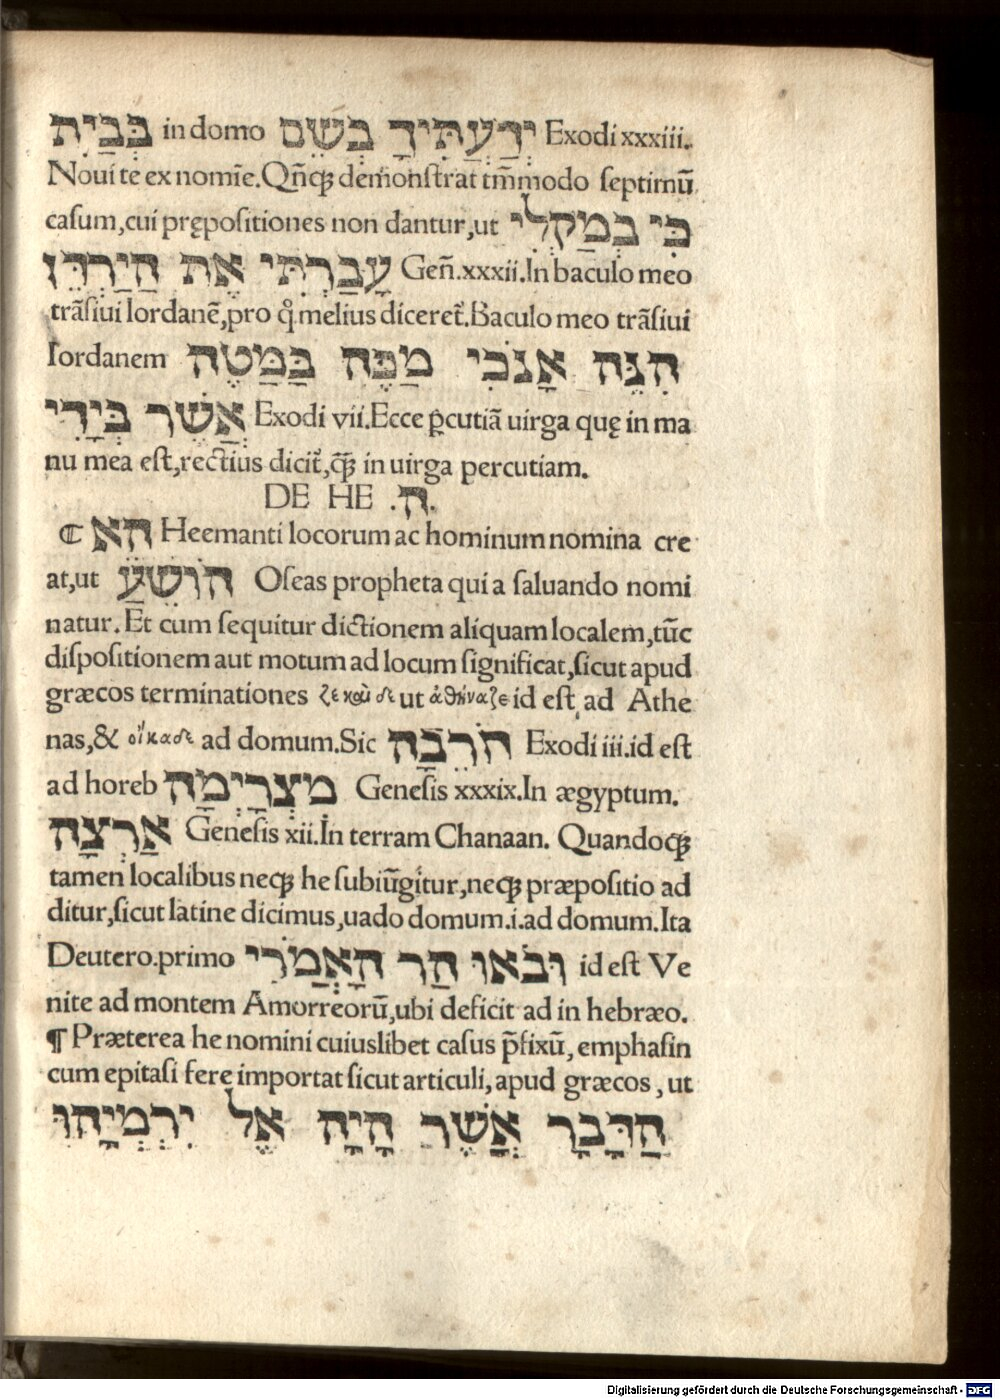 בְּבַיִת in domo יְדַעְתִּיךָ בְשֵׁם Exodi xxxiii.
Noui te ex nomīe. Qñcꝫ demonstrat tm̄modo septimū
casum, cui prępositiones non dantur, ut כִּי בְמַקְלִי
עָבַרְתִּי אֶת הַיַּרְדֵּן Geñ. xxxii. In baculo meo
trāsiui Iordanē, pro q̊ melius diceret̄. Baculo meo trāsiui
Iordanem הִנֵּה אָנֹכִי מַכֶּה בַּמַּטֶּה
אֲשֶׁר בְּיָדִי Exodi vii. Ecce p̱cutiā uirga quę in ma
nu mea est, rectius dicit̄, q̄ꝫ in uirga percutiam.
DE HE .ה.
⸿ הא Heemanti locorum ac hominum nomina cre
at, ut הוֹשֵׁעַ Oseas propheta qui a saluando nomi
natur. Et cum sequitur dictionem aliquam localem, tūc
dispositionem aut motum ad locum significat, sicut apud
græcos terminationes ζε καὶ δε ut ἀθήναζε id est ad Athe
nas, & οἴκαδε ad domum. Sic חֹרֵבָה Exodi iii. id est
ad horeb מִצְרָיְמָה Genesis xxxix. In ægyptum.
אַרְצָה Genesis xii. In terram Chanaan. Quandocꝫ
tamen localibus necꝫ he subiūgitur, necꝫ præpositio ad
ditur, sicut latine dicimus, uado domum .i. ad domum. Ita
Deutero. primo וּבֹאוּ הַר הָאֱמֹרִי id est Ve
nite ad montem Amorreorū, ubi deficit ad in hebræo.
¶ Præterea he nomini cuiuslibet casus p̄fixū, emphasin
cum epitasi fere importat sicut articuli, apud græcos, ut
הַדָּבָר אֲשֶׁר הָיָה אֶל יִרְמְיָהוּ
Digitalisierung gefördert durch die Deutsche Forschungsgemeinschaft - DFG